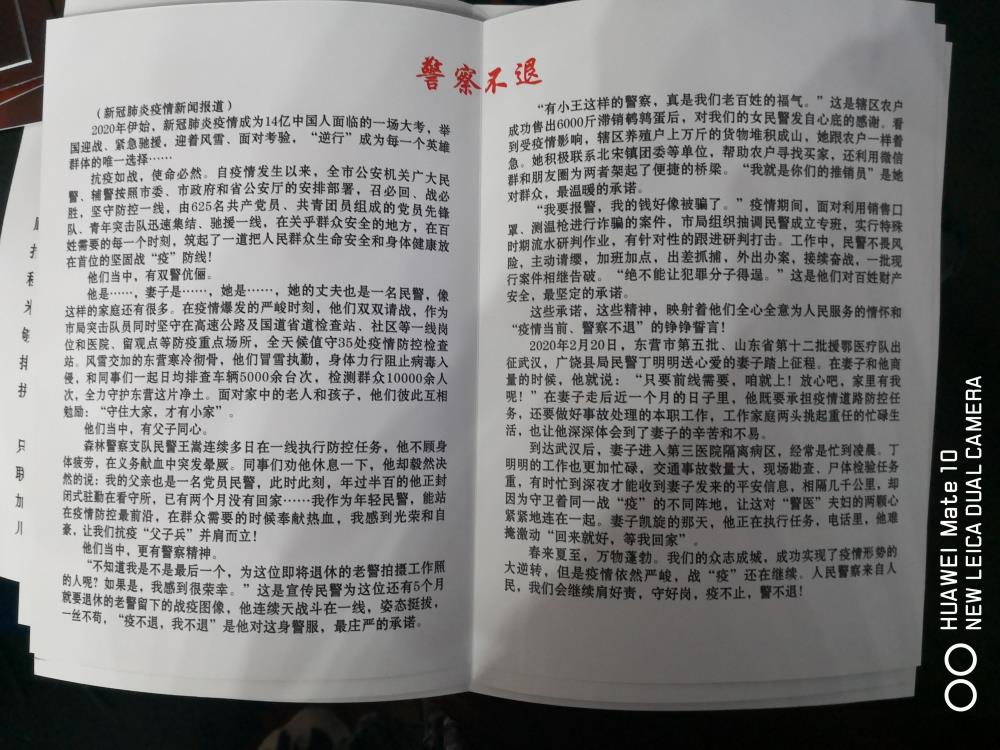 警察不退
（新冠肺炎疫情新闻报道）
2020年伊始，新冠肺炎疫情成为14亿中国人面临的一场大考，举
国迎战、紧急驰援，迎着风雪、面对考验，“逆行”成为每一个英雄
群体的唯一选择……
抗疫如战，使命必然。自疫情发生以来，全市公安机关广大民
警、辅警按照市委、市政府和省公安厅的安排部署，召必回、战必
胜，坚守防控一线，由625名共产党员、共青团员组成的党员先锋
队、青年突击队迅速集结、驰援一线，在关乎群众安全的地方，在百
姓需要的每一个时刻，筑起了一道把人民群众生命安全和身体健康放
在首位的坚固战“疫”防线！
他们当中，有双警伉俪。
他是……，妻子是……，她是……，她的丈夫也是一名民警，像
这样的家庭还有很多。在疫情爆发的严峻时刻，他们双双请战，作为
市局突击队员同时坚守在高速公路及国道省道检查站、社区等一线岗
位和医院、留观点等防疫重点场所，全天候值守35处疫情防控检查
站。风雪交加的东营寒冷彻骨，他们冒雪执勤，身体力行阻止病毒入
侵，和同事们一起日均排查车辆5000余台次，检测群众10000余人
次，全力守护东营这片净土。面对家中的老人和孩子，他们彼此互相
勉励：“守住大家，才有小家”。
他们当中，有父子同心。
森林警察支队民警王嵩连续多日在一线执行防控任务，他不顾身
体疲劳，在义务献血中突发晕厥。同事们劝他休息一下，他却毅然决
然的说：我的父亲也是一名党员民警，此时此刻，年过半百的他正封
闭式驻勤在看守所，已有两个月没有回家……我作为年轻民警，能站
在疫情防控最前沿，在群众需要的时候奉献热血，我感到光荣和自
豪，让我们抗疫“父子兵”并肩而立！
他们当中，更有警察精神。
“不知道我是不是最后一个，为这位即将退休的老警拍摄工作照
的人呢？如果是，我感到很荣幸。”这是宣传民警为这位还有5个月
就要退休的老警留下的战疫图像，他连续天战斗在一线，姿态挺拔，
一丝不苟，“疫不退，我不退”是他对这身警服，最庄严的承诺。
“有小王这样的警察，真是我们老百姓的福气。”这是辖区农户
成功售出6000斤滞销鹌鹑蛋后，对我们的女民警发自心底的感谢。看
到受疫情影响，辖区养殖户上万斤的货物堆积成山，她跟农户一样着
急。她积极联系北宋镇团委等单位，帮助农户寻找买家，还利用微信
群和朋友圈为两者架起了便捷的桥梁。“我就是你们的推销员”是她
对群众，最温暖的承诺。
“我要报警，我的钱好像被骗了。”疫情期间，面对利用销售口
罩、测温枪进行诈骗的案件，市局组织抽调民警成立专班，实行特殊
时期流水研判作业，有针对性的跟进研判打击。工作中，民警不畏风
险，主动请缨，加班加点，出差抓捕，外出办案，接续奋战，一批现
行案件相继告破。“绝不能让犯罪分子得逞。”这是他们对百姓财产
安全，最坚定的承诺。
这些承诺，这些精神，映射着他们全心全意为人民服务的情怀和
“疫情当前、警察不退”的铮铮誓言！
2020年2月20日，东营市第五批、山东省第十二批援鄂医疗队出
征武汉，广饶县局民警丁明明送心爱的妻子踏上征程。在妻子和他商
量的时候，他就说：“只要前线需要，咱就上！放心吧，家里有我
呢！”在妻子走后近一个月的日子里，他既要承担疫情道路防控任
务，还要做好事故处理的本职工作，工作家庭两头挑起重任的忙碌生
活，也让他深深体会到了妻子的辛苦和不易。
到达武汉后，妻子进入第三医院隔离病区，经常是忙到凌晨。丁
明明的工作也更加忙碌，交通事故数量大，现场勘查、尸体检验任务
重，有时忙到深夜才能收到妻子发来的平安信息，相隔几千公里，却
因为守卫着同一战“疫”的不同阵地，让这对“警医”夫妇的两颗心
紧紧地连在一起。妻子凯旋的那天，他正在执行任务，电话里，他难
掩激动“回来就好，等我回家”。
春来夏至，万物蓬勃。我们的众志成城，成功实现了疫情形势的
大逆转，但是疫情依然严峻，战“疫”还在继续。人民警察来自人
民，我们会继续肩好责，守好岗，疫不止，警不退！
HUAWEI Mate 10
NEW LEICA DUAL CAMERA